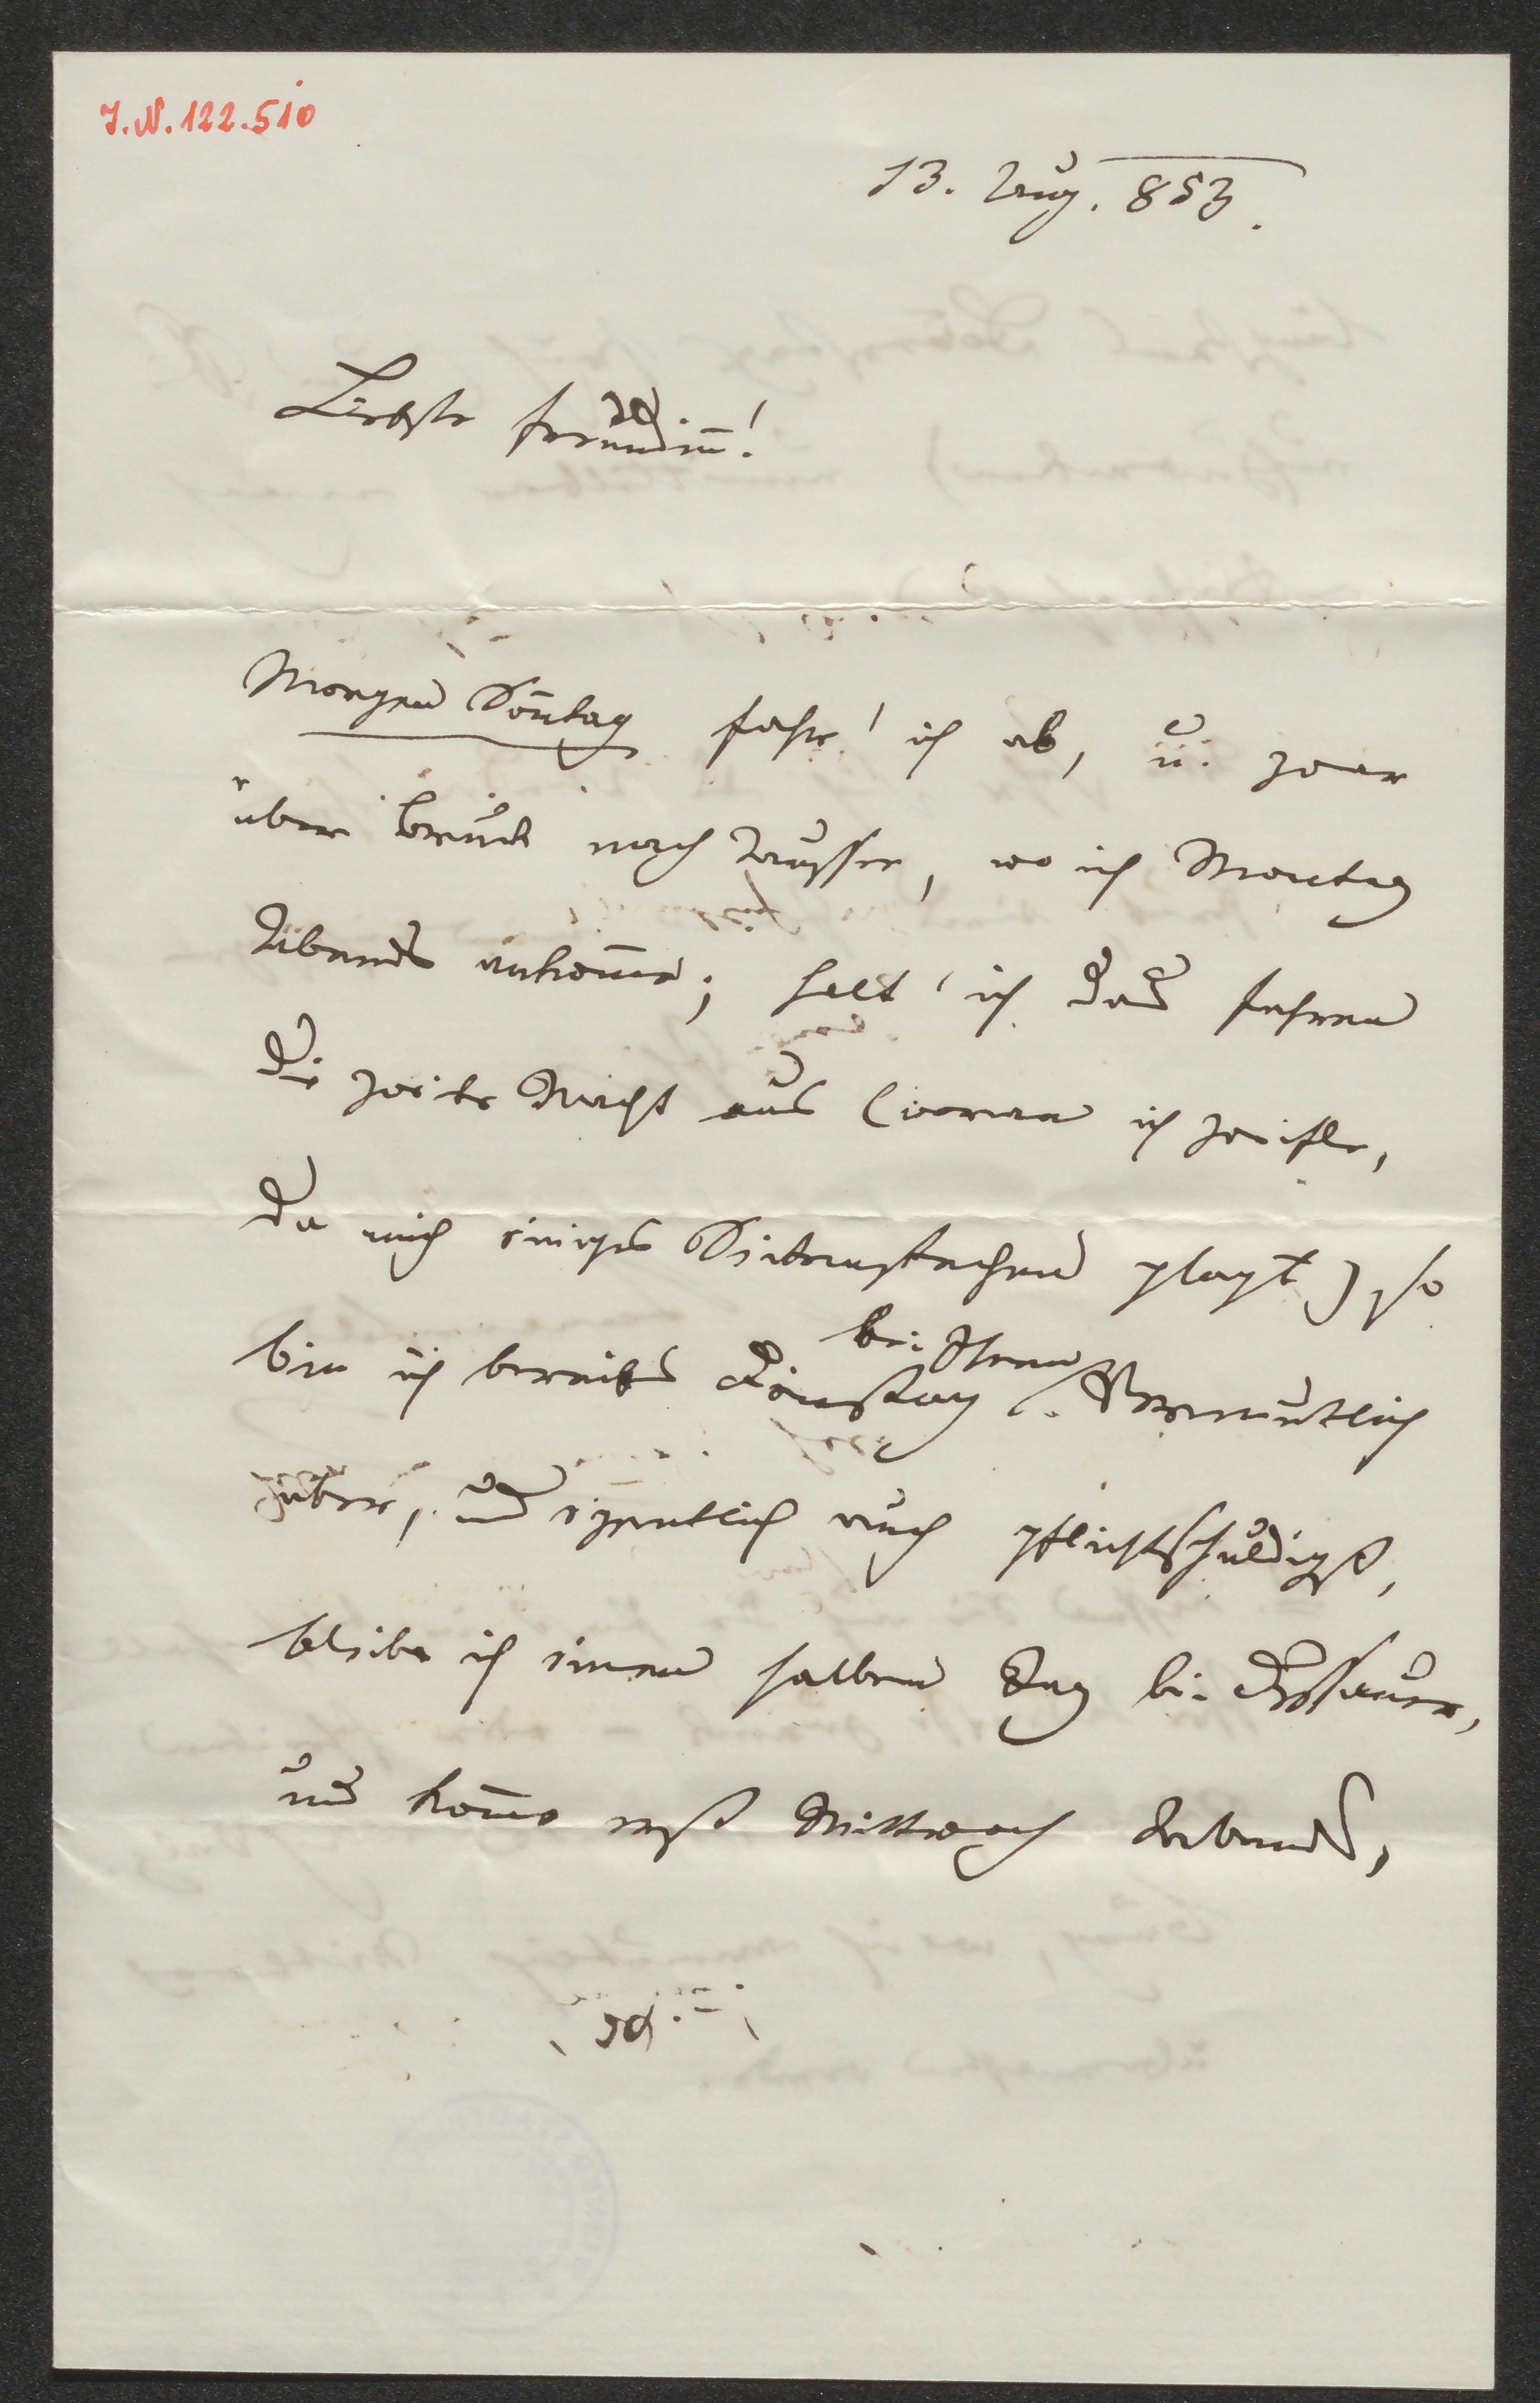 J.N. 122.510
13. Aug. 853.
Liebste Freundin̄!
Morgen Son̄tag fahr' ich ab, u: zwar
über Bruck nach Aussee, wo ich Montag
Abends ankom̄e; halt' ich das Fahren
die zweite Nacht aus (woran ich zweifle,
da mich einiges Seitenstechen plagt), so
bin ich bereits Dienstag bei Ihnen. Vermuthlich
aber, und eigentlich auch pflichtschuldigst,
bleibe ich einen halben Tag bei Dessauer,
und kom̄e erst Mittwoch Abends,